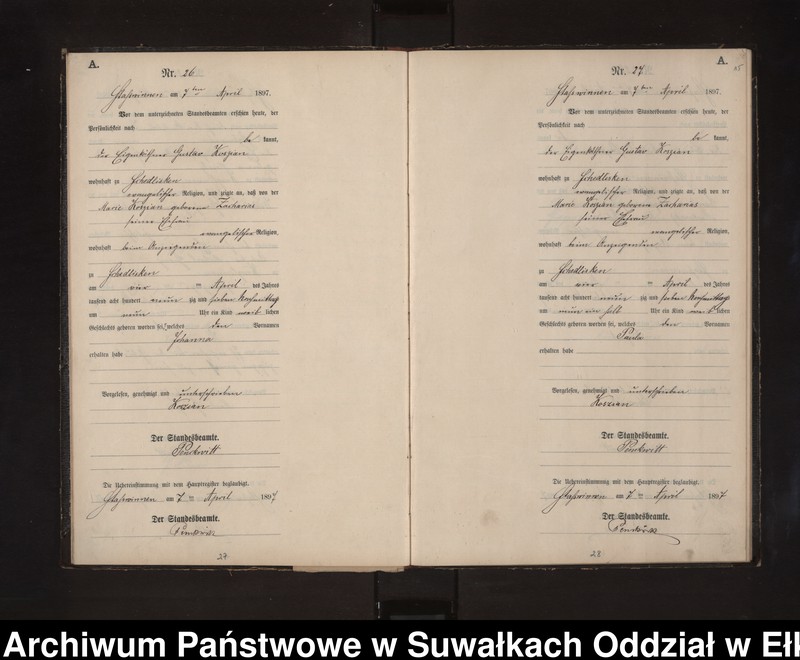 A.
Nr. 26
am 7ten April 1897.
Vor dem unterzeichneten Standesbeamten erschien heute, der
Persönlichkeit nach
be kannt,
der Eigenkäthner Gustav Koszian
wohnhaft zu Schedlisken
evangelischer Religion, und zeigte an, daß von der
Marie Koszian geborene Zacharias
seiner Ehefrau
evangelischer Religion,
wohnhaft beim Anzeigenden
zu Schedlisken
am vier ten April des Jahres
tausend acht hundert neun zig und sieben Vormittag
um neun Uhr ein Kind weib lichen
Geschlechts geboren worden sei, welches den Vornamen
Johanna
erhalten habe
Vorgelesen, genehmigt und unterschrieben
Koszian
Der Standesbeamte.
Die Uebereinstimmung mit dem Hauptregister beglaubigt.
am 7 ten April 1897
Der Standesbeamte.
27
A.
Nr. 27
am 7ten April 1897.
Vor dem unterzeichneten Standesbeamten erschien heute, der
Persönlichkeit nach
be kannt,
der Eigenkäthner Gustav Koszian
wohnhaft zu Schedlisken
evangelischer Religion, und zeigte an, daß von der
Marie Koszian geborene Zacharias
seiner Ehefrau
evangelischer Religion,
wohnhaft beim Anzeigenden
zu Schedlisken
am vier ten April des Jahres
tausend acht hundert neun zig und sieben Vormittag
um neun ein halb Uhr ein Kind weib lichen
Geschlechts geboren worden sei, welches den Vornamen
Paula
erhalten habe
Vorgelesen, genehmigt und unterschrieben
Koszian
Der Standesbeamte.
Die Uebereinstimmung mit dem Hauptregister beglaubigt.
am 7 ten April 1897
Der Standesbeamte.
28
Archiwum Państwowe w Suwałkach Oddział w Ełk